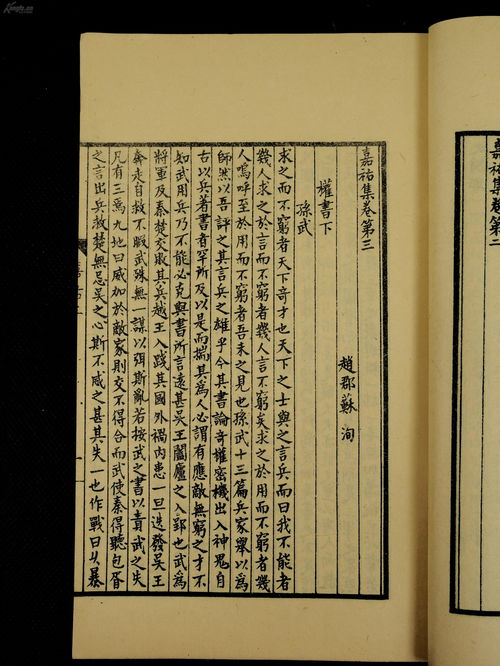 嘉祐集卷第三
趙郡蘇洵
權書下
孫武
求之而不窮者天下奇才也天下之士與之言兵而曰我不能者
幾人求之於言而不窮者幾人言不窮矣求之於用而不窮者幾
人嗚呼至於用而不窮者吾未之見也孫武十三篇兵家舉以為
師然以吾評之其言兵之雄乎今其書論奇權密機出入神自
古以兵著書者罕所及以是而揣其爲人必謂有應敵無窮之才不
知武用兵乃不能必克與書所言遠甚吳王闔廬之入郢也武爲
將軍及秦楚交敗其兵越王入踐其國外禍內患一旦迭發吳王
奔走自救不暇武殊無一謀以弭斯亂若按武之書以責武之失
凡有三焉九地曰威加於敵家則交不得合而武使秦得聽包胥
之言出兵救楚無忌吳之心斯不威之甚其失一也作戰曰久暴
Kongfz.cn